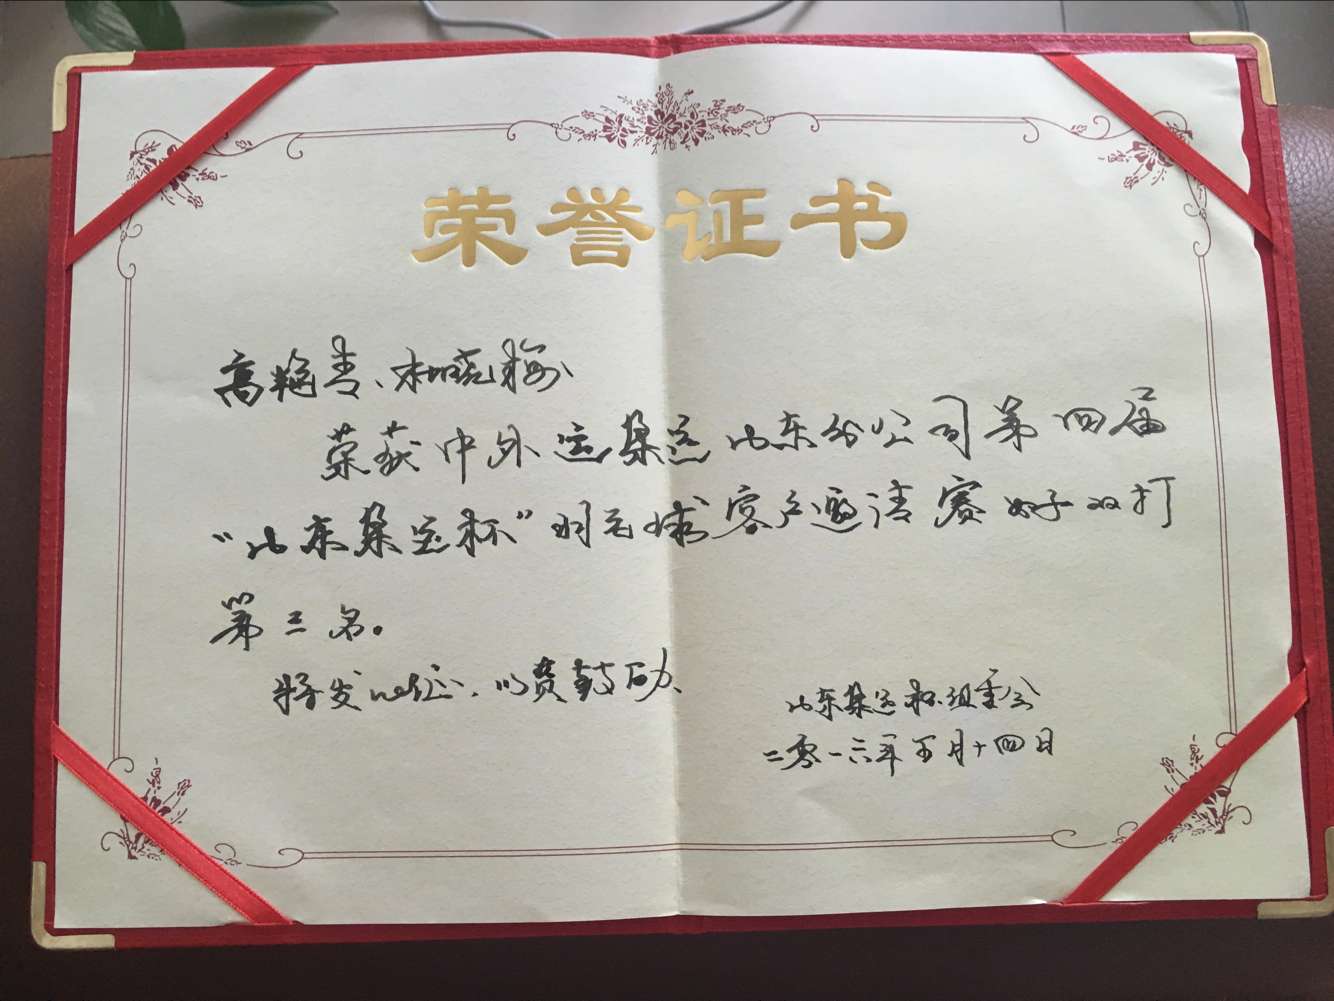 荣誉证书
高艳青、杜晓梅
荣获中外运集运山东分公司第四届
“山东集运杯”羽毛球客户邀请赛女子双打
第三名。
特发此证、以资鼓励、
山东集运杯组委会
二零一六年五月十四日